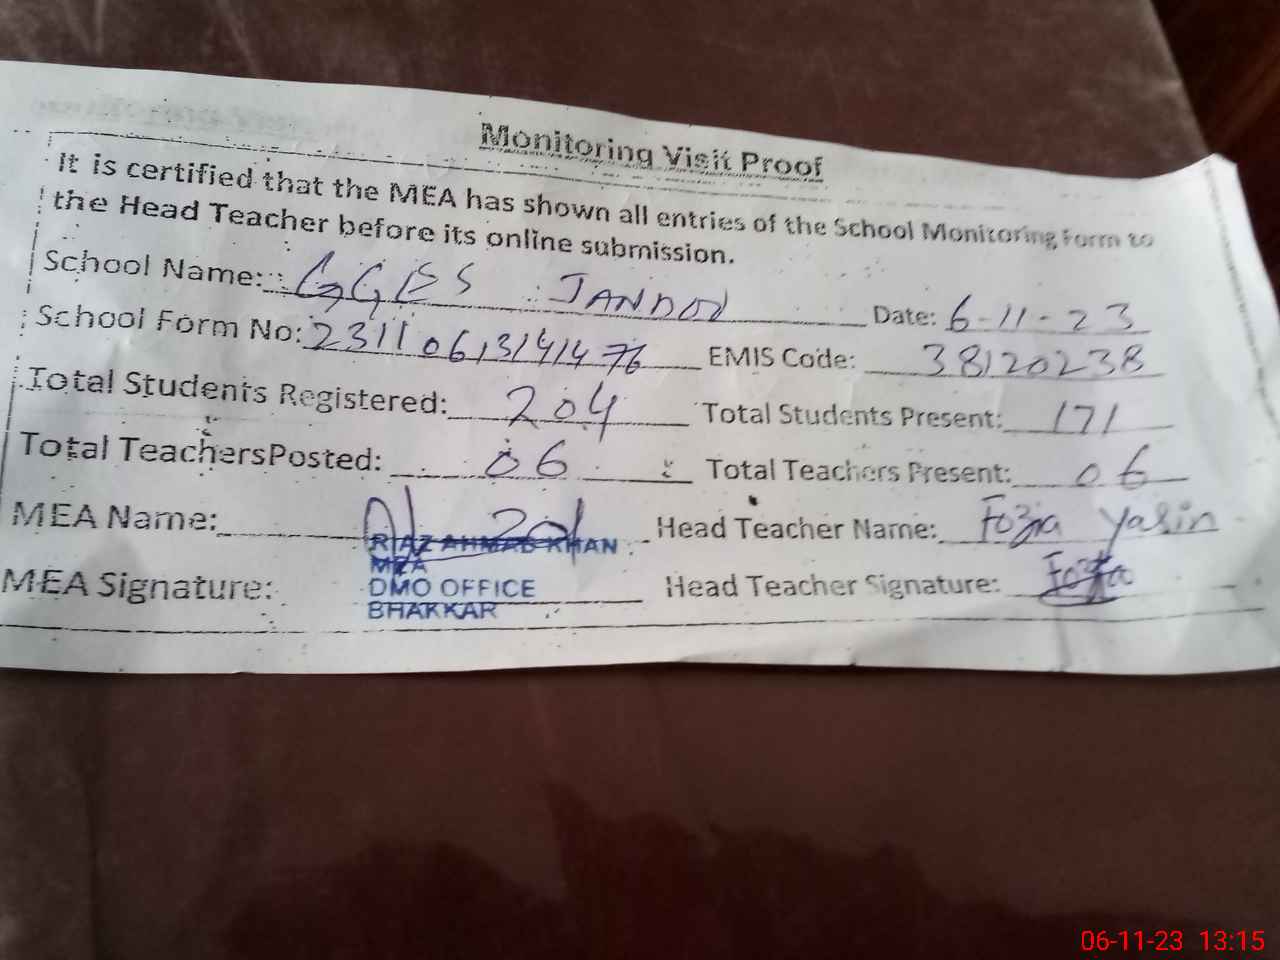 Monitoring Visit Proof
It is certified that the MEA has shown all entries of the School Monitoring Form to
the Head Teacher before its online submission.
School Name: GGES JANDOO Date: 6-11-23
School Form No: 23110613141476 EMIS Code: 38120238
Total Students Registered: 204 Total Students Present: 171
Total Teachers Posted: 06 Total Teachers Present: 06
MEA Name: Head Teacher Name: Fozia Yasin
RIAZ AHMAD KHAN
MEA
MEA Signature: DMO OFFICE Head Teacher Signature: Fozia
BHAKKAR
06-11-23 13:15